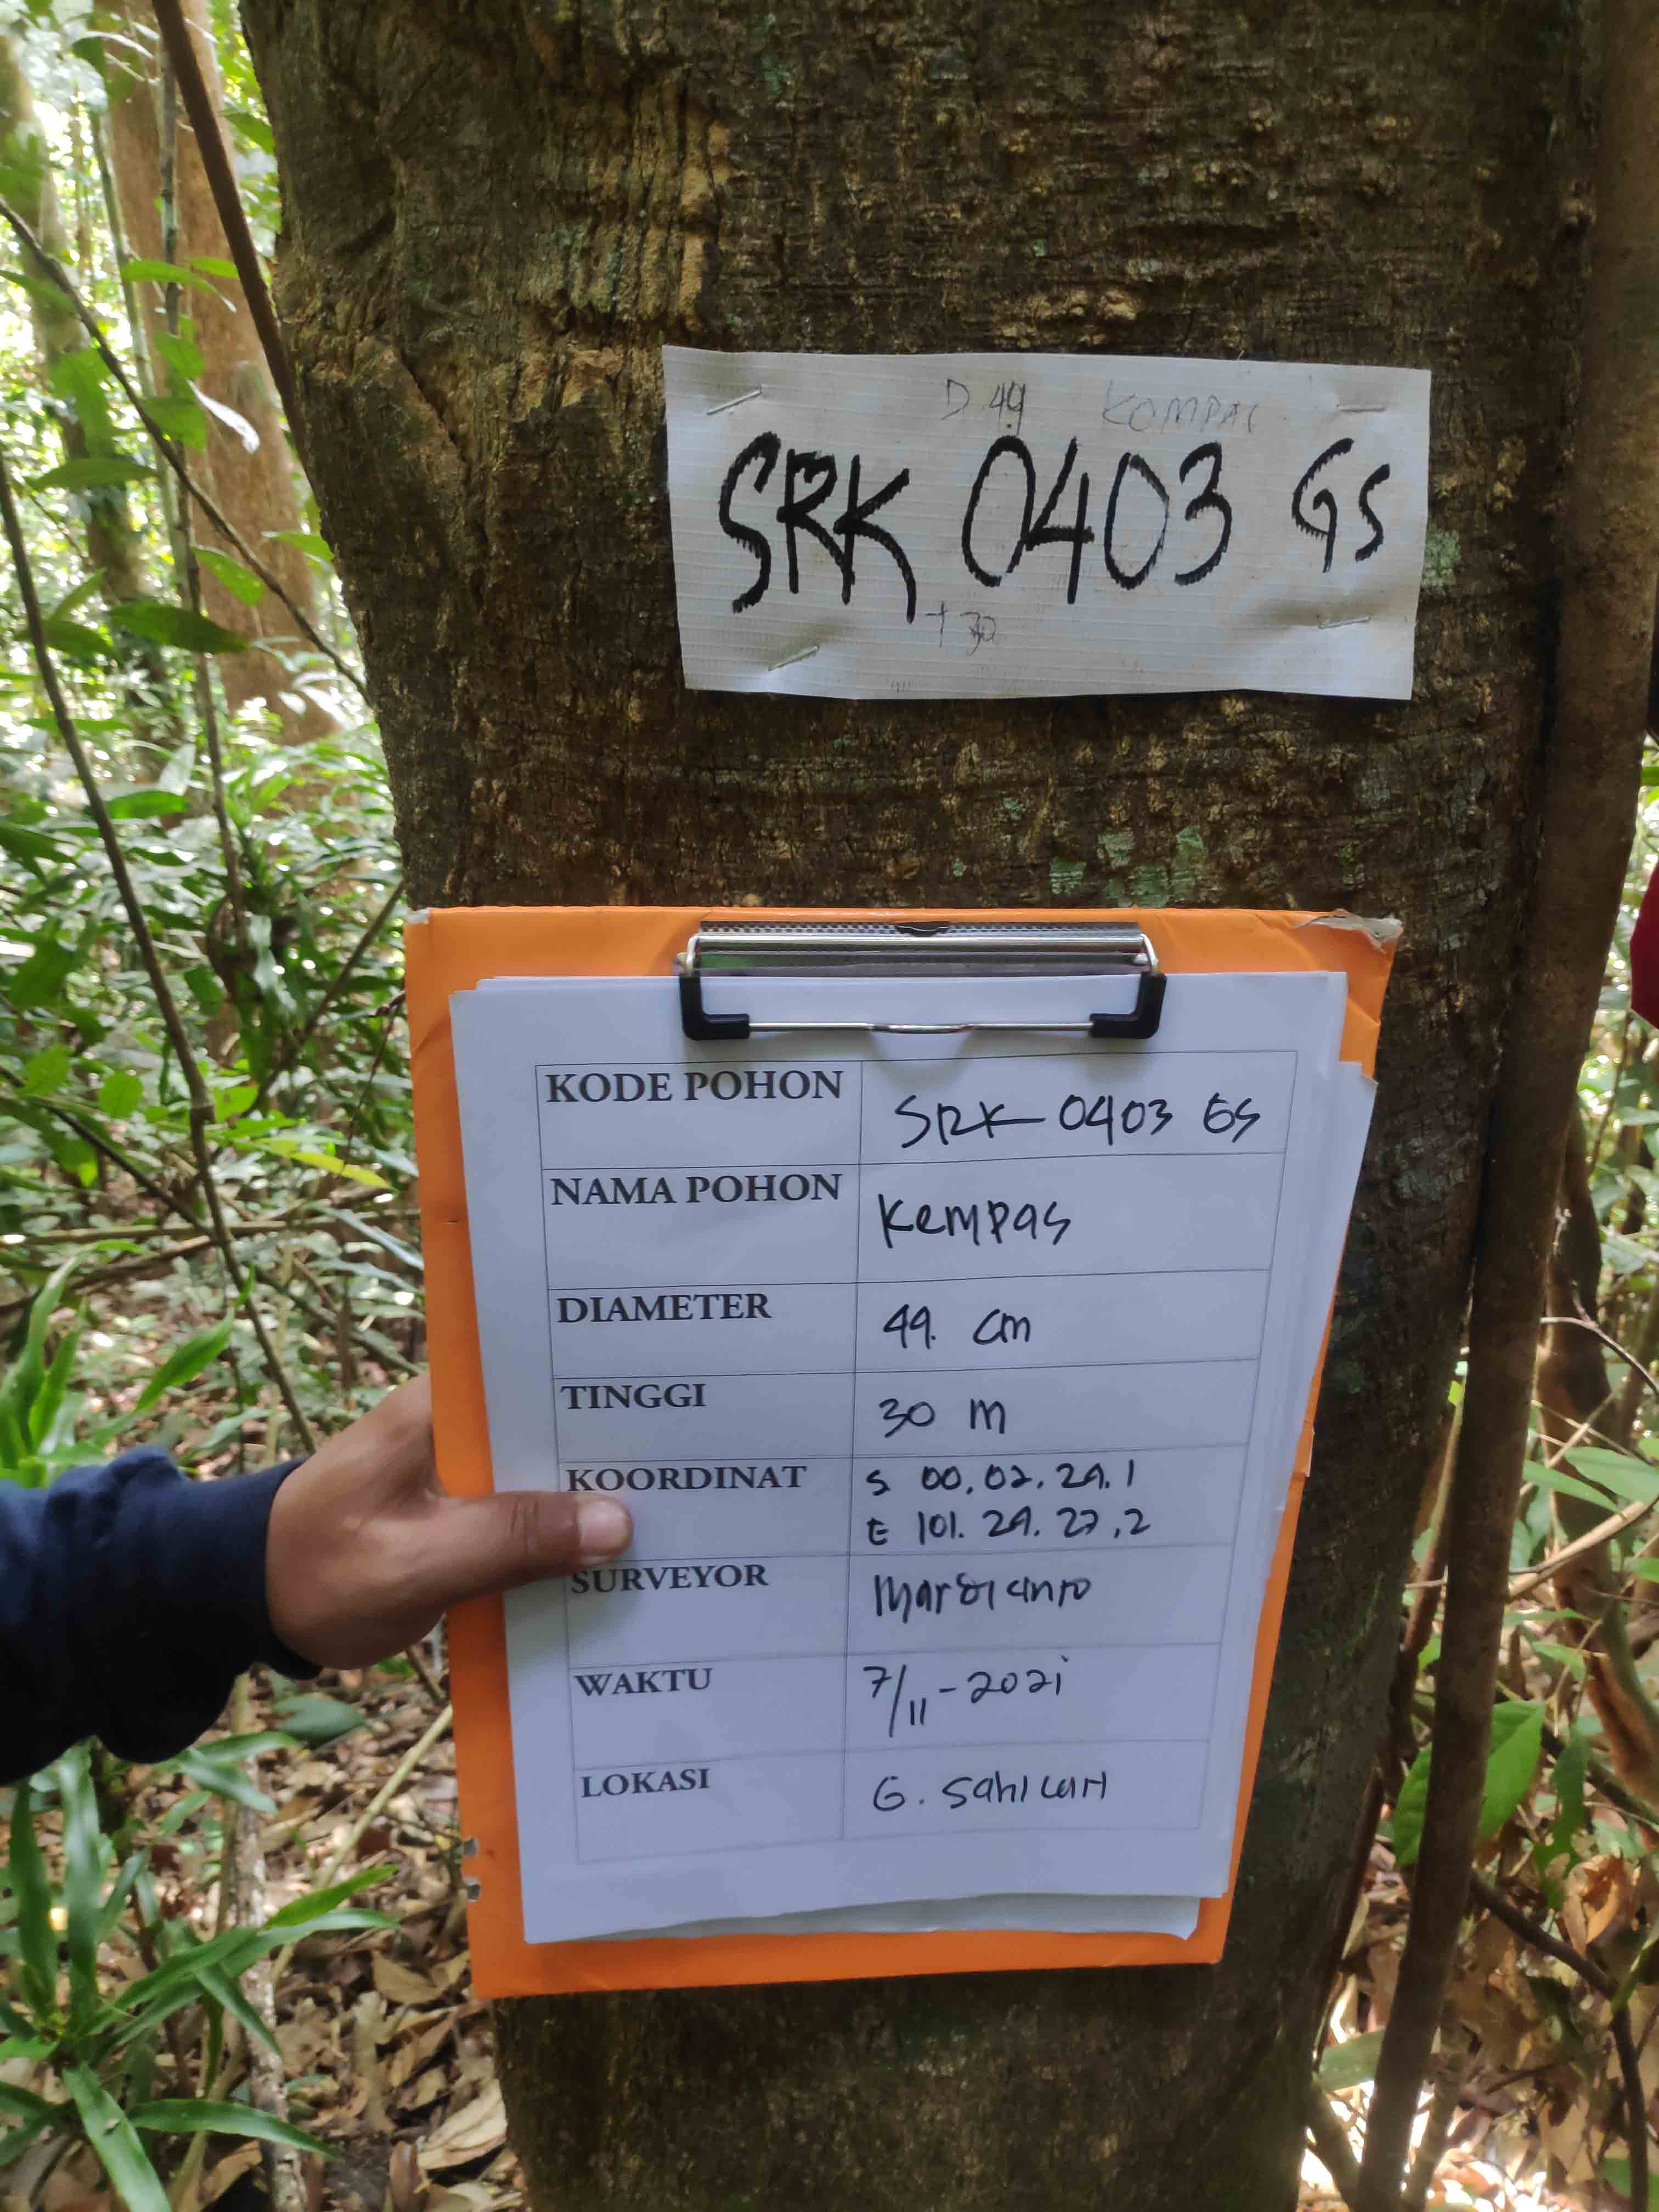 D 49 KOMPAS
SRK 0403 GS
T 30
KODE POHON SRK 0403 GS
NAMA POHON Kempas
DIAMETER 49. cm
TINGGI 30 M
KOORDINAT S 00.02.29.1
E 101.29.27.2
SURVEYOR Mardianto
WAKTU 7/11-2021
LOKASI G. Sahilan